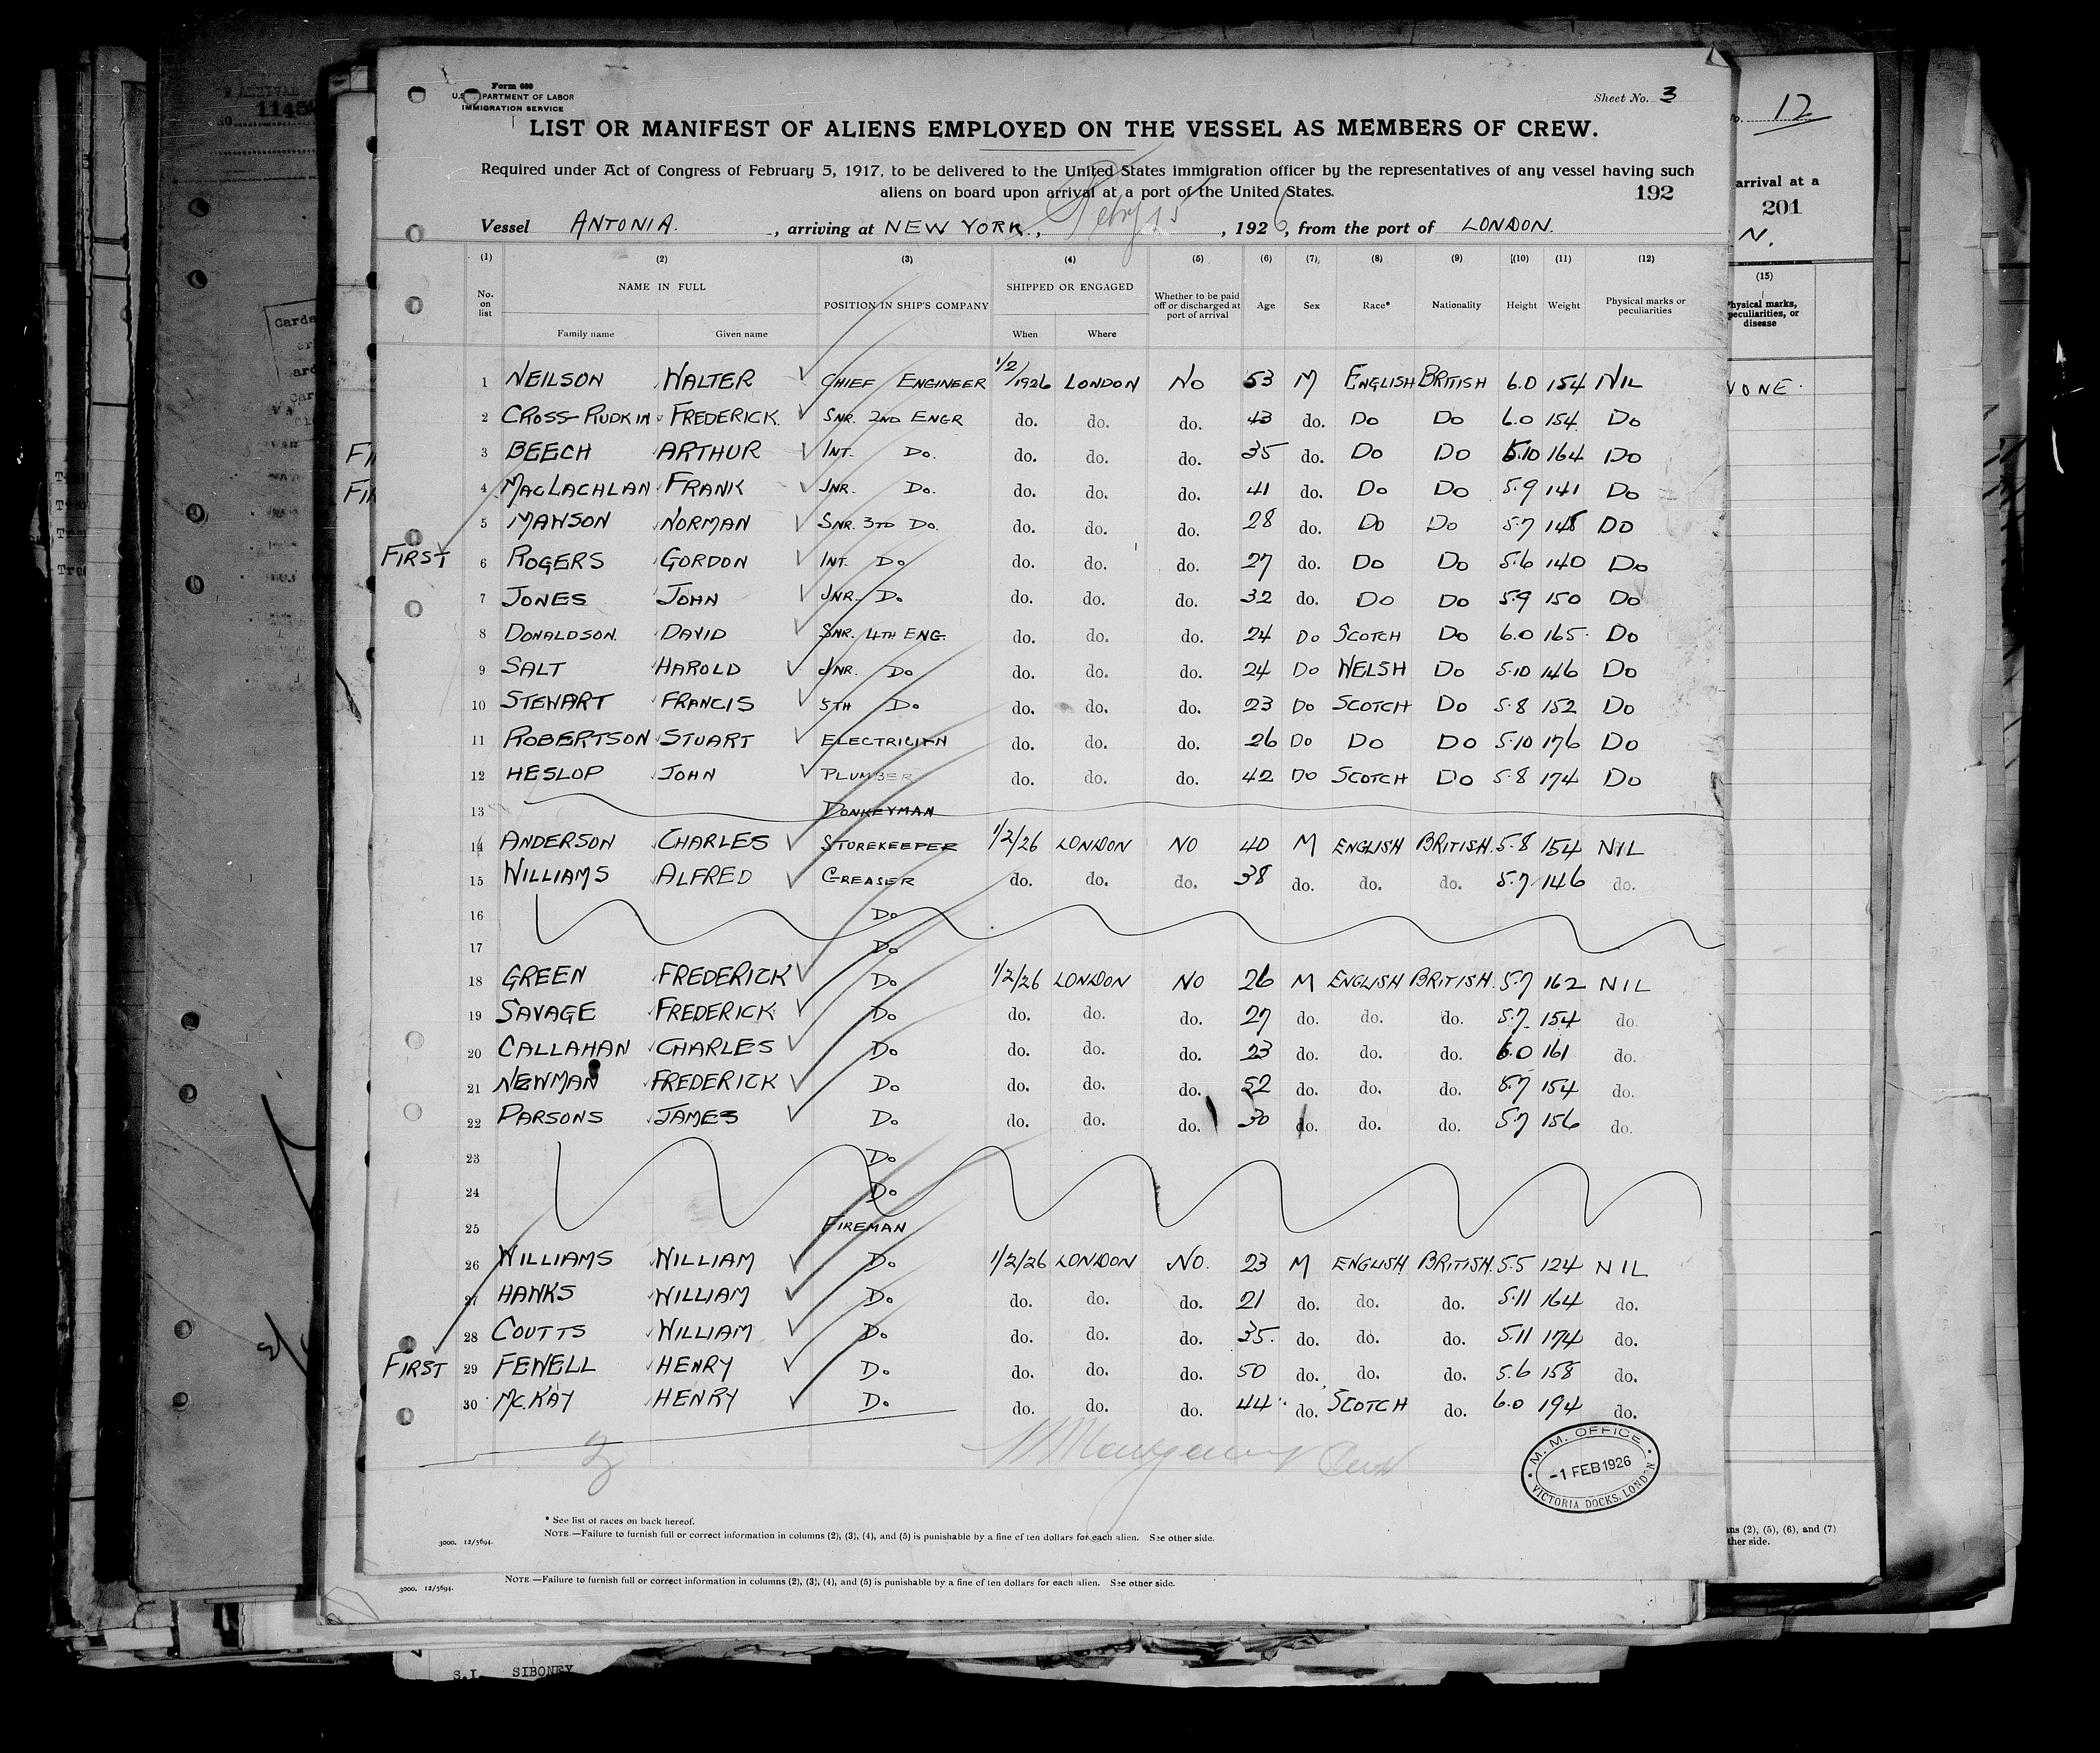 Form 680
U.S. DEPARTMENT OF LABOR
IMMIGRATION SERVICE
Sheet No. 3
LIST OR MANIFEST OF ALIENS EMPLOYED ON THE VESSEL AS MEMBERS OF CREW.
Required under Act of Congress of February 5, 1917, to be delivered to the United States immigration officer by the representatives of any vessel having such
aliens on board upon arrival at a port of the United States.
192
Vessel ANTONIA., arriving at NEW YORK., Feby 15, 1926, from the port of LONDON.
(1) (2) (3) (4) (5) (6) (7) (8) (9) (10) (11) (12)
No. on list NAME IN FULL Family name Given name POSITION IN SHIP'S COMPANY SHIPPED OR ENGAGED When Where Whether to be paid off or discharged at port of arrival Age Sex Race* Nationality Height Weight Physical marks or peculiarities
1 NEILSON WALTER CHIEF ENGINEER 1/2/1926 LONDON NO 53 M ENGLISH BRITISH 6.0 154 NIL
2 CROSS-RUDKIN FREDERICK. SNR. 2ND ENGR do. do. do. 43 do. DO DO 6.0 154 DO
3 BEECH ARTHUR INT. DO. do. do. do. 35 do. DO DO 5.10 164 DO
4 MACLACHLAN FRANK JNR. DO. do. do. do. 41 do. DO DO 5.9 141 DO
5 MAWSON NORMAN SNR. 3TD DO. do. do. do. 28 do. DO DO 5.7 148 DO
FIRST 6 ROGERS GORDON INT. DO do. do. do. 27 do. DO DO 5.6 140 DO
7 JONES JOHN JNR. DO do. do. do. 32 do. DO DO 5.9 150 DO
8 DONALDSON. DAVID SNR. 4TH ENG. do. do. do. 24 DO SCOTCH DO 6.0 165 DO
9 SALT HAROLD JNR. DO do. do. do. 24 DO WELSH DO 5.10 146 DO
10 STEWART FRANCIS 5TH DO do. do. do. 23 DO SCOTCH DO 5.8 152 DO
11 ROBERTSON STUART ELECTRICIAN do. do. do. 26 DO DO DO 5.10 176 DO
12 HESLOP JOHN PLUMBER do. do. do. 42 DO SCOTCH DO 5.8 174 DO
13 DONKEYMAN
14 ANDERSON CHARLES STOREKEEPER 1/2/26 LONDON NO 40 M ENGLISH BRITISH. 5.8 154 NIL
15 WILLIAMS ALFRED GREASER do. do. do. 38 do. do. do. 5.7 146 do.
16 DO
17 DO
18 GREEN FREDERICK DO 1/2/26 LONDON NO 26 M ENGLISH BRITISH. 5.7 162 NIL
19 SAVAGE FREDERICK DO do. do. do. 27 do. do. do. 5.7 154 do.
20 CALLAHAN CHARLES DO do. do. do. 23 do. do. do. 6.0 161 do.
21 NEWMAN FREDERICK DO do. do. do. 52 do. do. do. 5.7 154 do.
22 PARSONS JAMES DO do. do. do. 30 do. do. do. 5.7 156 do.
23 DO
24 DO
25 FIREMAN
26 WILLIAMS WILLIAM DO 1/2/26 LONDON NO. 23 M ENGLISH BRITISH. 5.5 124 NIL
27 HAWKS WILLIAM DO do. do. do. 21 do. do. do. 5.11 164 do.
28 COUTTS WILLIAM DO do. do. do. 35. do. do. do. 5.11 174 do.
FIRST 29 FEWELL HENRY DO do. do. do. 50 do. do. do. 5.6 158 do.
30 MC.KAY HENRY DO do. do. do. 44 do. SCOTCH do. 6.0 194 do.
M. M. OFFICE
-1 FEB 1926
VICTORIA DOCKS, LONDON
* See list of races on back hereof.
NOTE.—Failure to furnish full or correct information in columns (2), (3), (4), and (5) is punishable by a fine of ten dollars for each alien. See other side.
3000. 12/5694.
NOTE.—Failure to furnish full or correct information in columns (2), (3), (4), and (5) is punishable by a fine of ten dollars for each alien. See other side.
3000. 12/5694.
12
arrival at a
201
N.
(15)
Physical marks, peculiarities, or disease
NONE.
(2), (5), (6), and (7)
other side.
S.I. SIBONEY